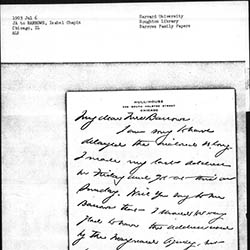 1903 Jul 6
JA to BARROWS, Isabel Chapin
Chicago, IL
ALS
Harvard University
Houghton Library
Barrows Family Papers
HULL-HOUSE
335 SOUTH HALSTED STREET
CHICAGO
My dear Mrs Barrows
I am sorry to have
delayed the matter so long.
I made my last address
on Friday and
Sunday. Will you say to Mr
Barrows that I should be very
glad to have the address used
by the